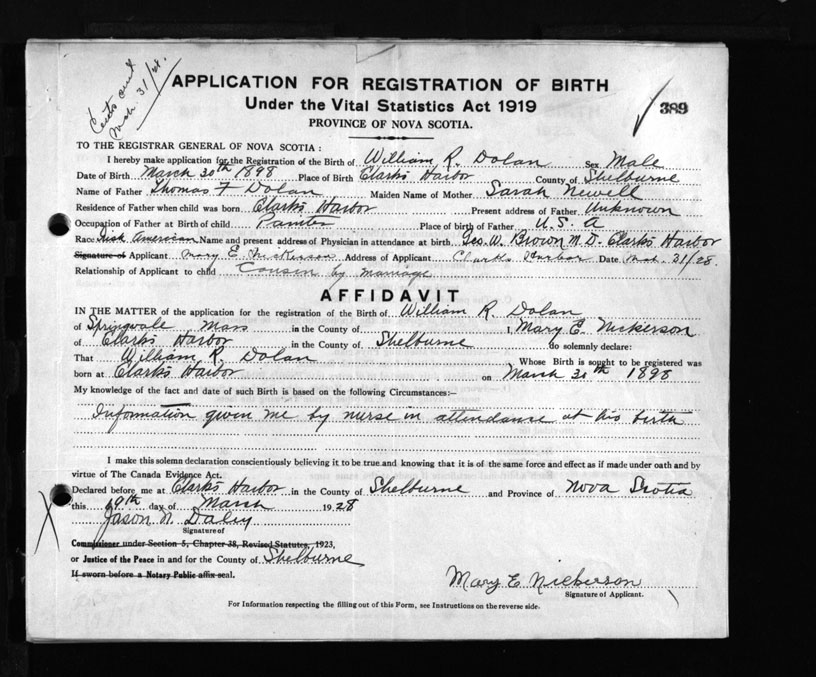 Mar 31/28.
APPLICATION FOR REGISTRATION OF BIRTH
Under the Vital Statistics Act 1919
389
PROVINCE OF NOVA SCOTIA.
TO THE REGISTRAR GENERAL OF NOVA SCOTIA:
I hereby make application for the Registration of the Birth of William R. Dolan Sex Male
Date of Birth March 30th 1898 Place of Birth Clarks Harbor County of Shelburne
Name of Father Thomas F Dolan Maiden Name of Mother Sarah Newell
Residence of Father when child was born Clarks Harbor Present address of Father Unknown
Occupation of Father at Birth of child Painter Place of birth of Father U.S.A
Race Irish American Name and present address of Physician in attendance at birth Geo. W. Brown M.D. Clarks Harbor
Signature of Applicant Mary E. Nickerson Address of Applicant Clarks Harbor Date Mar. 31/28.
Relationship of Applicant to child Cousin by marriage
AFFIDAVIT
IN THE MATTER of the application for the registration of the Birth of William R. Dolan
of Springvale Mass in the County of I, Mary E. Nickerson
of Clarks Harbor in the County of Shelburne do solemnly declare:
That William R. Dolan Whose Birth is sought to be registered was
born at Clarks Harbor on March 30th 1898
My knowledge of the fact and date of such Birth is based on the following Circumstances:—
Information given me by nurse in attendance at his birth
I make this solemn declaration conscientiously believing it to be true and knowing that it is of the same force and effect as if made under oath and by
virtue of The Canada Evidence Act.
Declared before me at Clarks Harbor in the County of Shelburne and Province of Nova Scotia
this day of March 1928
Jason N. Daley
Signature of
Commissioner under Section 5, Chapter 38, Revised Statutes, 1923,
or Justice of the Peace in and for the County of Shelburne
If sworn before a Notary Public affix seal.
Mary E Nickerson
Signature of Applicant.
For Information respecting the filling out of this Form, see Instructions on the reverse side.